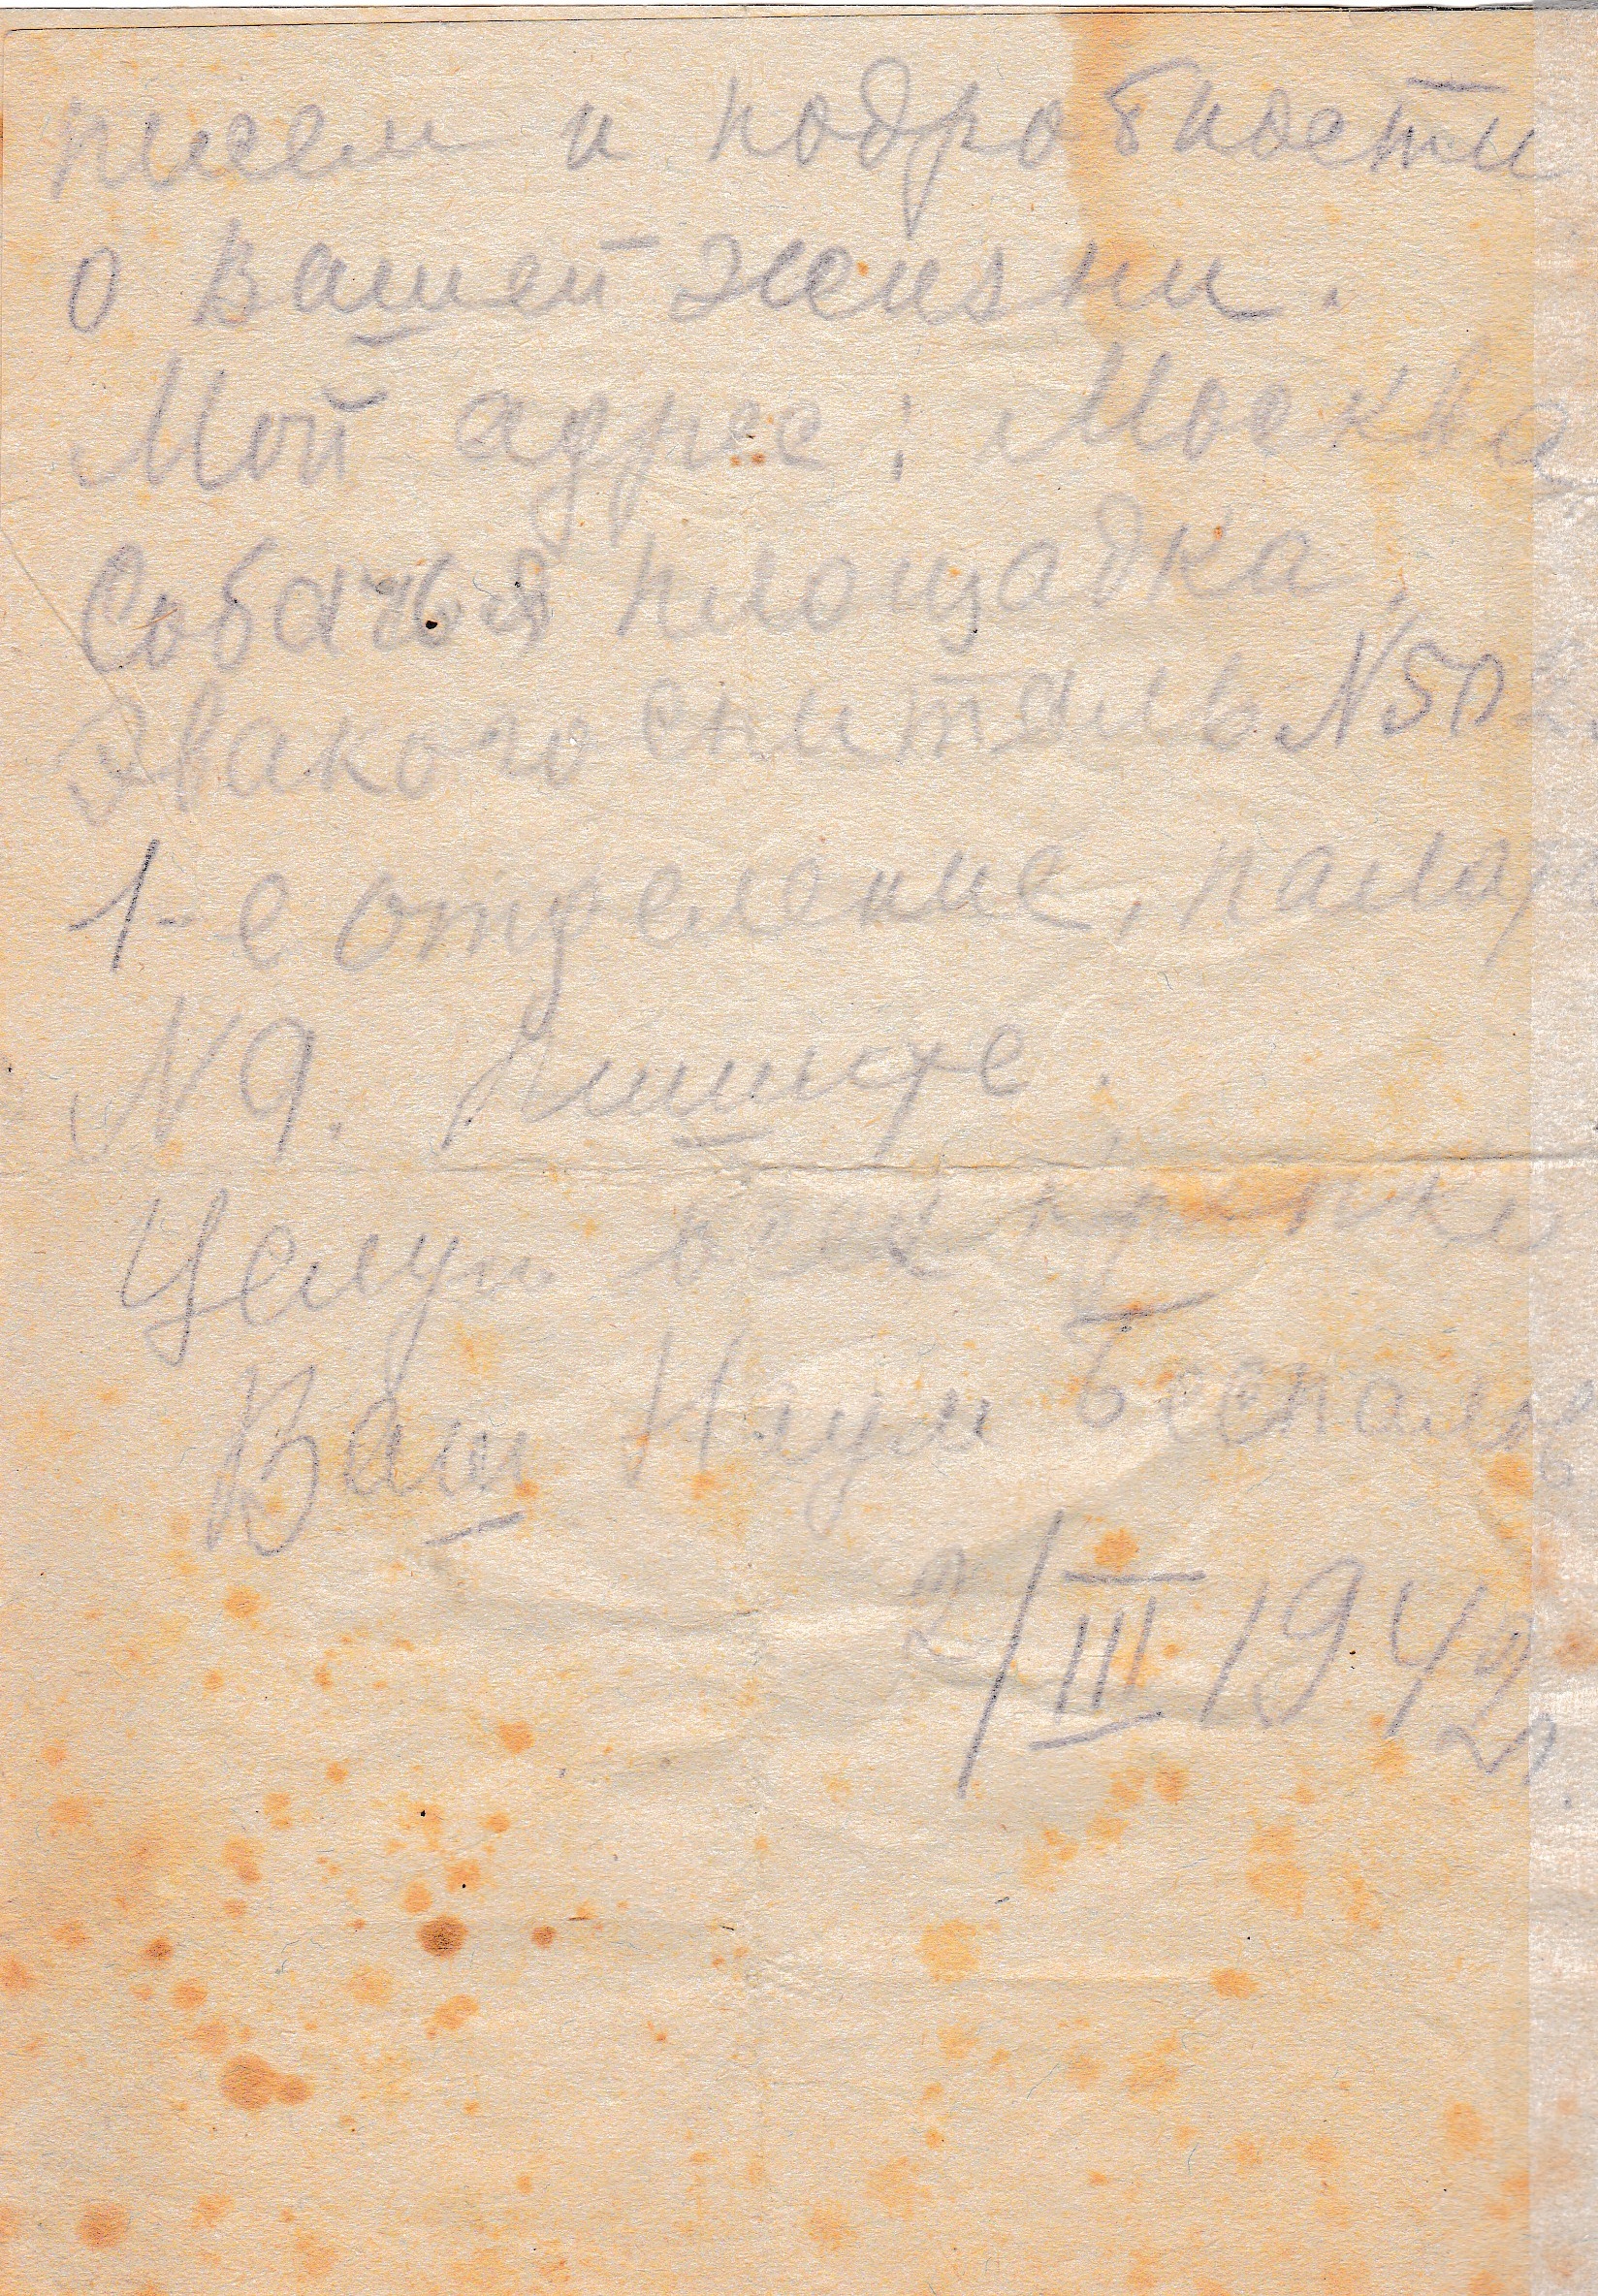 писем и подробности
о Вашей жизни.
Мой адрес: Москва
Собачья площадка,
Эвакогоспиталь №50
1-е отделение, пала
N 9. Пишите.
Целую всех крепко
Ваш Наум Беспалов
2/III 1942